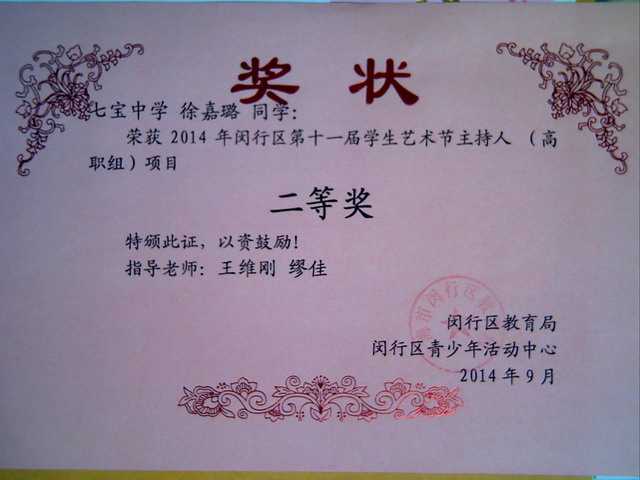 奖 状
七宝中学 徐嘉璐 同学：
荣获 2014 年闵行区第十一届学生艺术节主持人 （高
职组）项目
二等奖
特颁此证，以资鼓励！
指导老师：王维刚 缪佳
闵行区教育局
闵行区青少年活动中心
2014 年 9 月